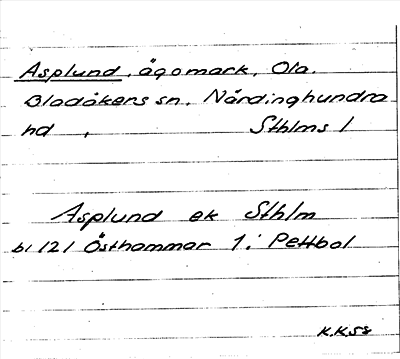 Asplund, ägomark, Ola.
Bladåkers sn. Närdinghundra
hd, Sthlms l
Asplund ek Sthlm
bl 121 Östhammar 1: Pettbol
K.K. 58